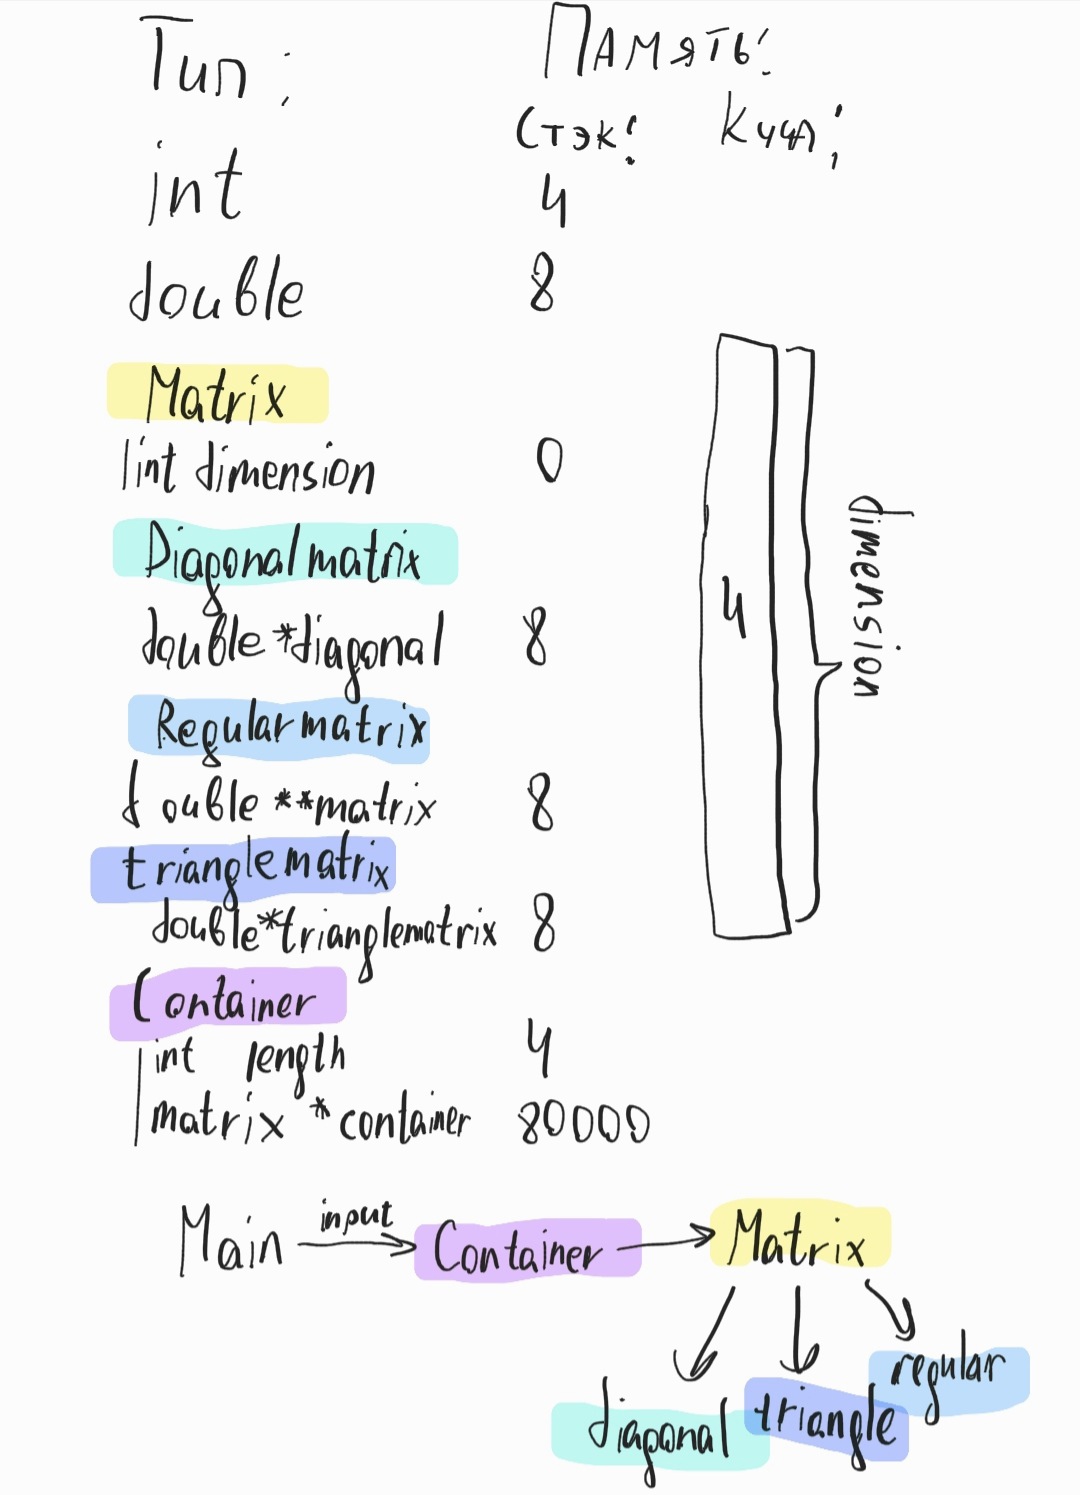 Тип: Память:
Стэк: Куча:
int 4
double 8
Matrix
int dimension 0
Diagonalmatrix
double *diagonal 8
Regularmatrix
double **matrix 8
trianglematrix
double*trianglematrix 8
Container
int length 4
matrix *container 80000
4
dimension
Main input Container Matrix
diagonal triangle regular